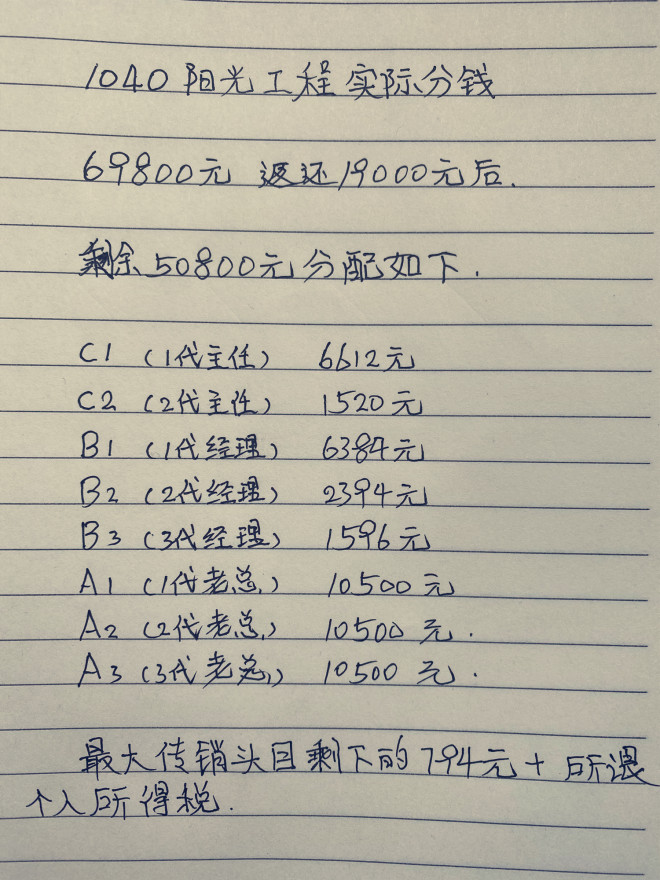 1040阳光工程实际分钱
69800元 返还19000元后.
剩余50800元分配如下.
C1 (1代主任) 6612元
C2 (2代主任) 1520元
B1 (1代经理) 6384元
B2 (2代经理) 2394元
B3 (3代经理) 1596元
A1 (1代老总) 10500元
A2 (2代老总) 10500元.
A3 (3代老总) 10500元.
最大传销头目剩下的794元+所退
个人所得税.